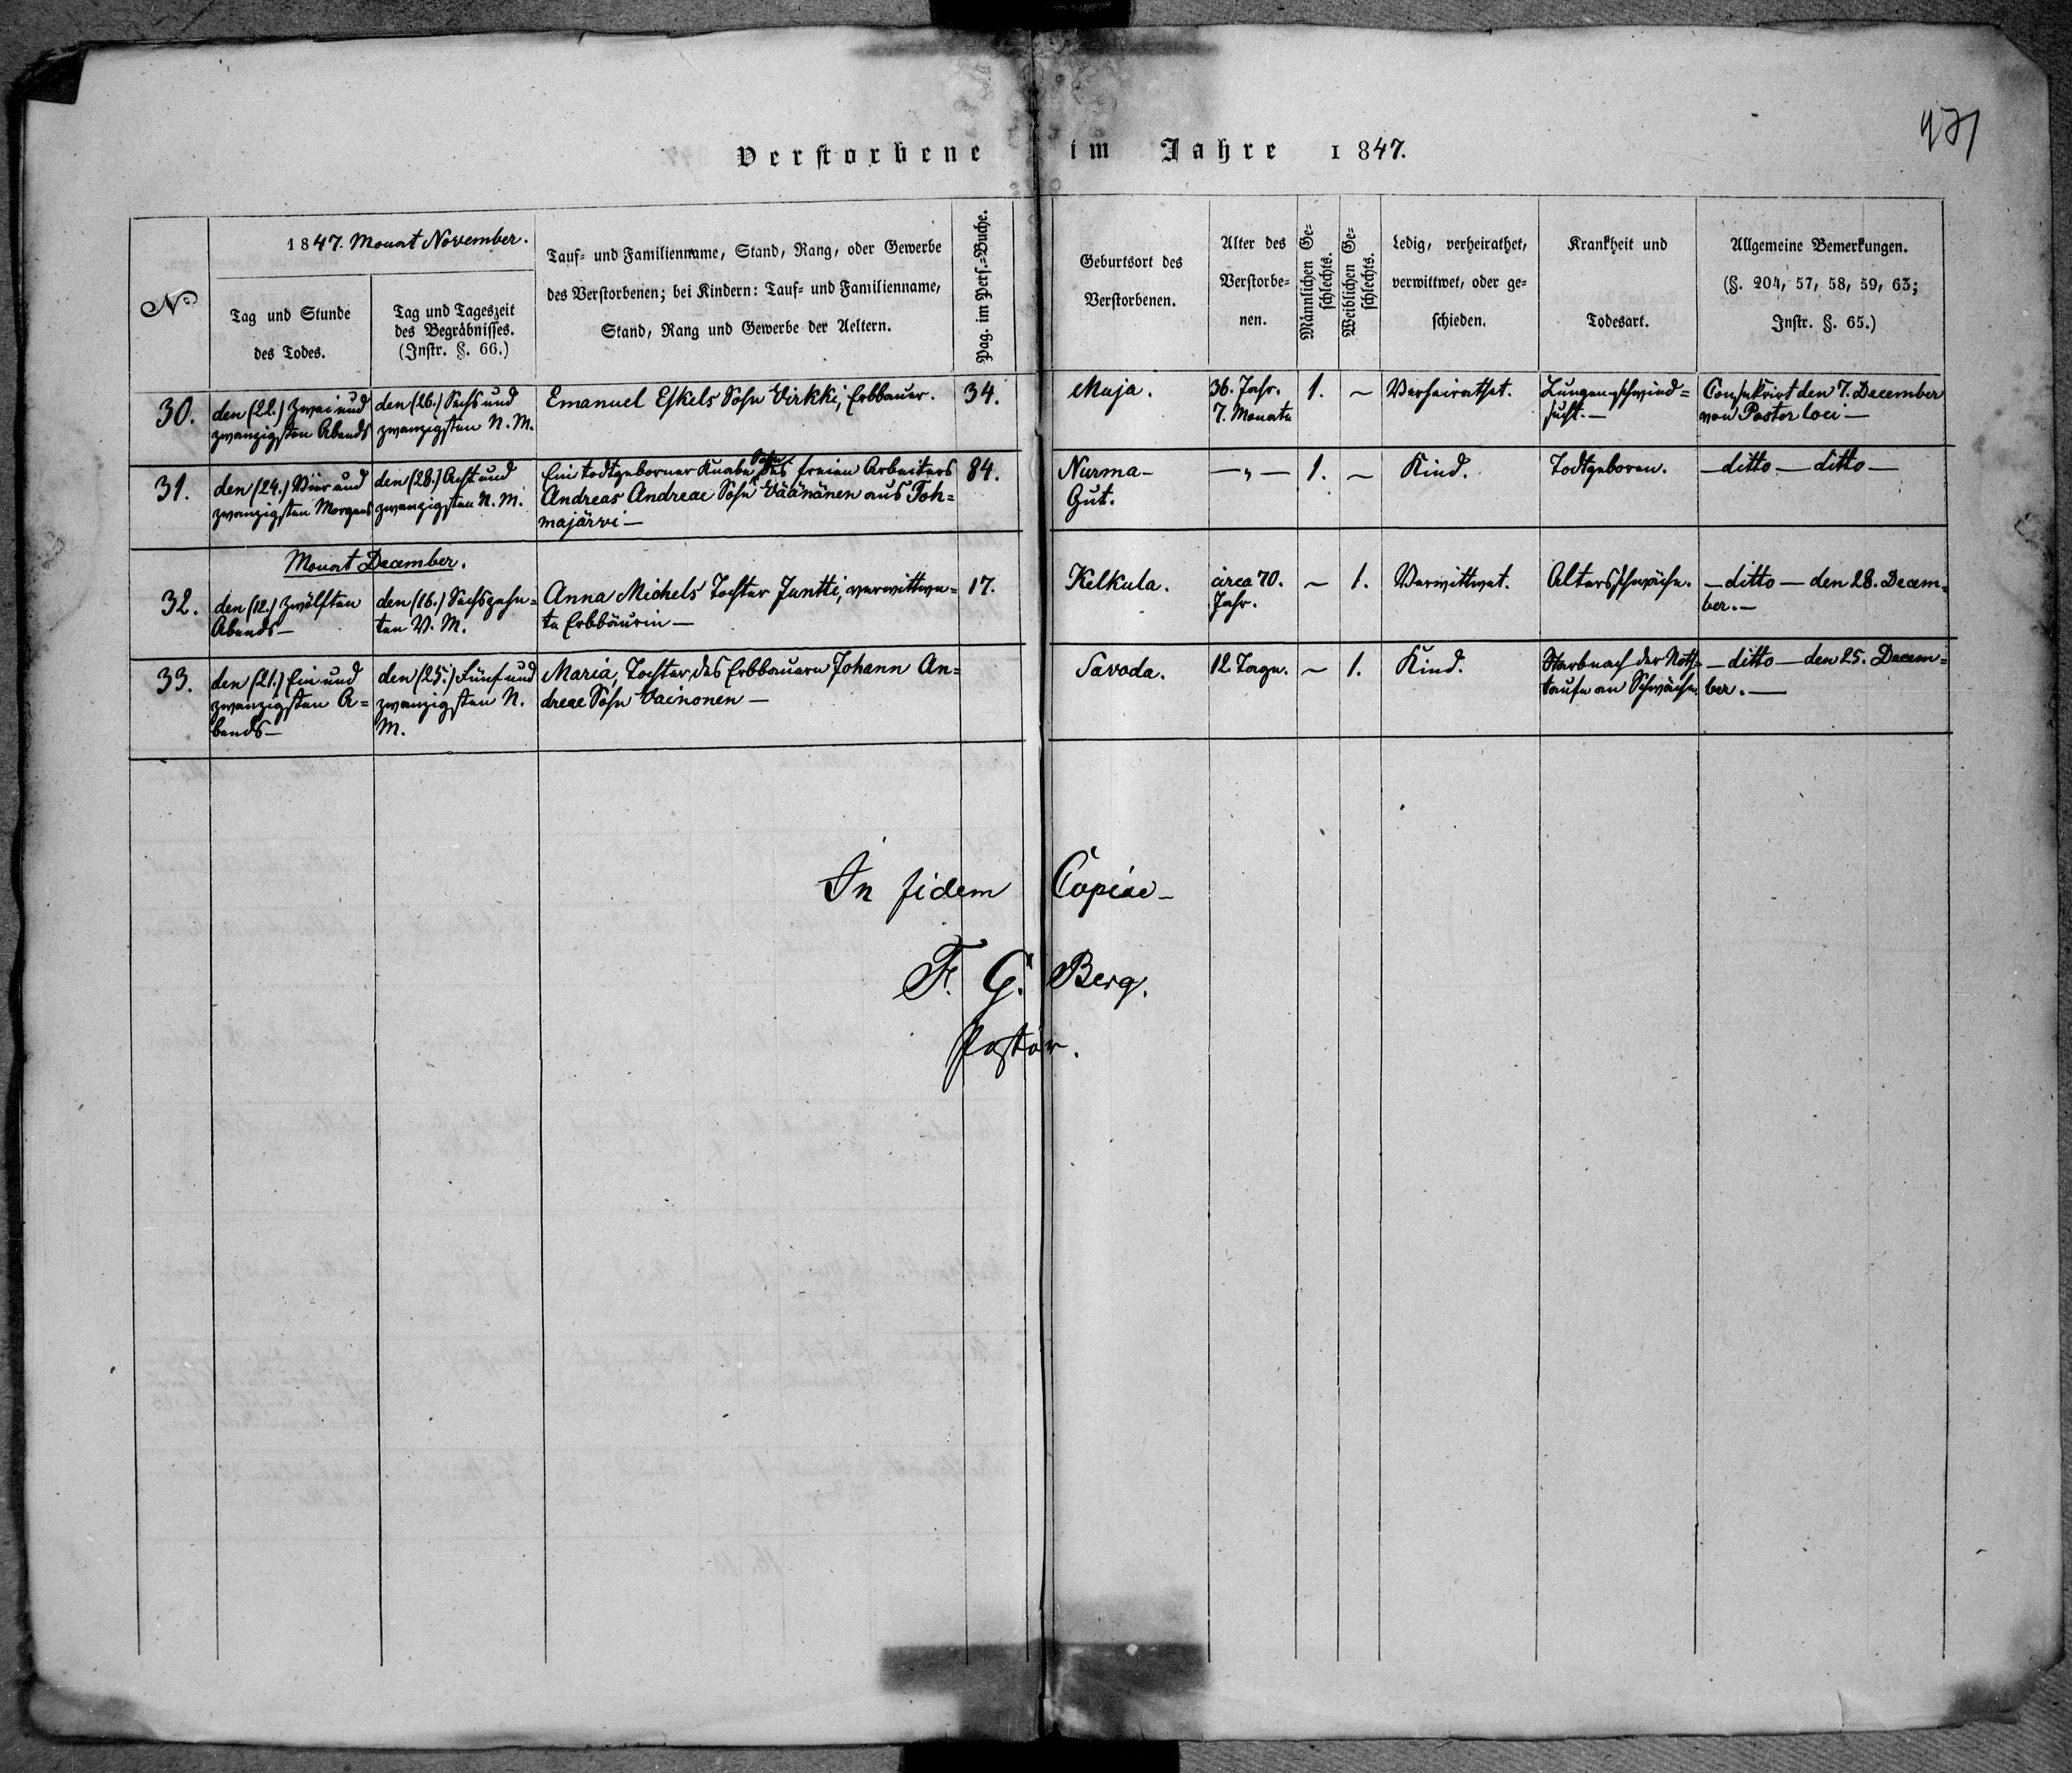 471
Verstorbene im Jahre 1847.
No
1847. Monat November.
Tag und Stunde
des Todes.
Tag und Tageszeit
des Begräbnisses.
(Instr. §. 66.)
Tauf= und Familienname, Stand, Rang, oder Gewerbe
des Verstorbenen; bei Kindern: Tauf= und Familienname,
Stand, Rang und Gewerbe der Aeltern.
Pag. im Pers.=Buche.
Geburtsort des
Verstorbenen.
Alter des
Verstorbe-
nen.
Männlichen Ge-
schlechts.
Weiblichen Ge-
schlechts.
Ledig, verheirathet,
verwittwet, oder ge-
schieden.
Krankheit und
Todesart.
Allgemeine Bemerkungen.
(§. 204, 57, 58, 59, 63;
Instr. §. 65.)
30.
den (22.) Zwei und
zwanzigsten Abends
den (26.) Sechs und
zwanzigsten N. M.
Emanuel Eskels Sohn Virkki, Erbbauer.
34.
Muja.
36. Jahr.
7. Monate
1.
~
Verheirathet.
Lungenschwind=
sucht. —
Consekrirt den 7. December
von Pastor loci —
31.
den (24.) Vier und
zwanzigsten Morgens
den (28.) Acht und
zwanzigsten N. M.
Ein todtgeborner Knabe, Sohn des freien Arbeiters
Andreas Andreae Sohn Väänänen aus Toh=
majärvi —
84.
Nurma-
Gut.
— „ —
1.
~
Kind.
Todtgeboren.
— ditto — ditto —
Monat December.
32.
den (12.) Zwölften
Abends —
den (16.) Sechszehn=
ten V. M.
Anna Michels Tochter Juntti, verwittwe=
te Erbbäurin —
17.
Kelkula.
circa 70.
Jahr.
~
1.
Verwittwet.
Altersschwäche.
— ditto — den 28. Decem=
ber. —
33.
den (21.) Ein und
zwanzigsten A=
bends —
den (25.) Fünf und
zwanzigsten N.
M.
Maria, Tochter des Erbbauern Johann An=
dreae Sohn Vainonen —
Savoda.
12. Tage.
~
1.
Kind.
Starb nach der Noth=
taufe an Schwäche.
— ditto — den 25. Decem=
ber. —
In fidem Copiae —
F. G. Berg.
Pastor.